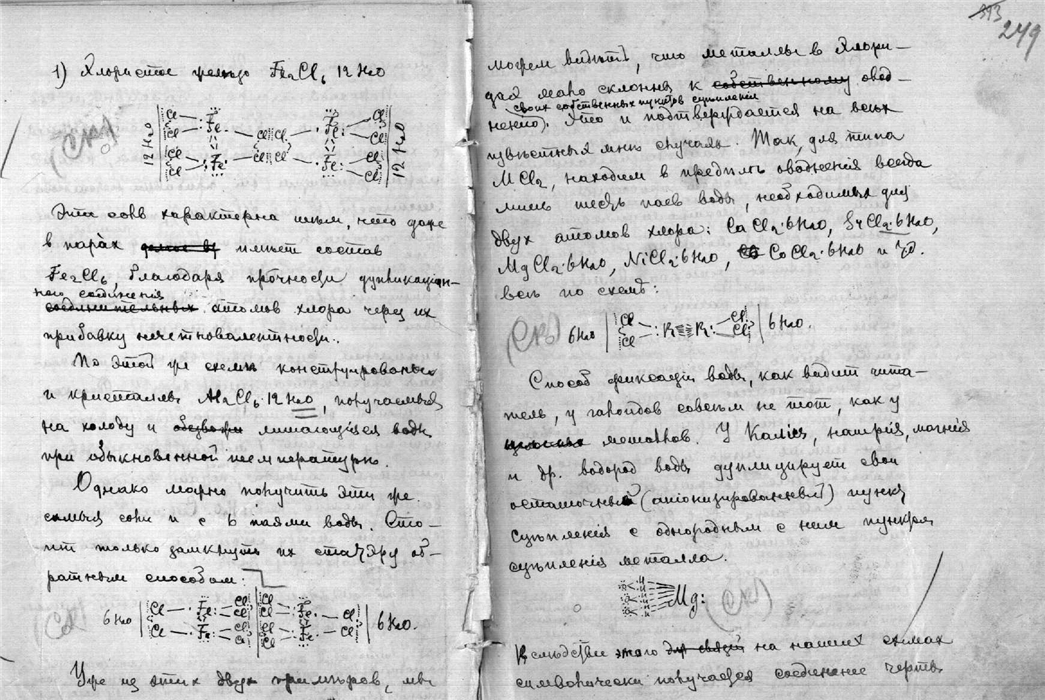 1) Хлористое железо Fe₂Cl₆ 12 H₂O
12 H₂O Cl Cl Fe Cl Cl Fe Cl Cl 12 H₂O
Cl Cl Fe Cl Cl Fe Cl Cl
Эта соль характерна тем, что даже
в парах имеет состав
Fe₂Cl₆, благодаря прочности дупликацiон-
наго соединенiя
соединительных атомов хлора через их
прибавку нечетновалентности.
По этой же схеме конструированы
и кристаллы Al₂Cl₆·12 H₂O, получаемые
на холоду и лишающiеся воды
при обыкновенной температуре.
Однако можно получить эти же
самыя соли и с 6 паями воды. Сто-
ит только замкнуть их об-
ратным способом:
6 H₂O Cl Fe Cl Cl Fe Cl 6 H₂O.
Cl Fe Cl Cl Fe Cl
Уже из этих двух примеров, мы
893
249
можем видеть, что металлы в хлори-
дах мало склонны к собственному овод-
своих собственных пунктов сцепленiя
нению). Это и подтверждается на всех
известных мне случаях. Так, для типа
MCl₂, находим в пределе оводненiя всегда
лишь шесть паев воды, необходимых для
двух атомов хлора: CaCl₂·6H₂O, SrCl₂·6H₂O,
MgCl₂·6H₂O, NiCl₂·6H₂O, CoCl₂·6H₂O и др.
все по схеме:
6 H₂O Cl Cl R R Cl Cl 6 H₂O.
Способ фиксацiи воды, как видит чита-
тель, у галоидов совсем не тот, как у
металлов. У Калiя, натрiя, магнiя
и др. водород воды дуплицирует свои
остаточный (анiонизированный) пункт
сцепленiя с однородным с ним пунктом
сцепленiя металла.
Mg:
Вследствие этого на наших схемах
символически получается соединенiе черты